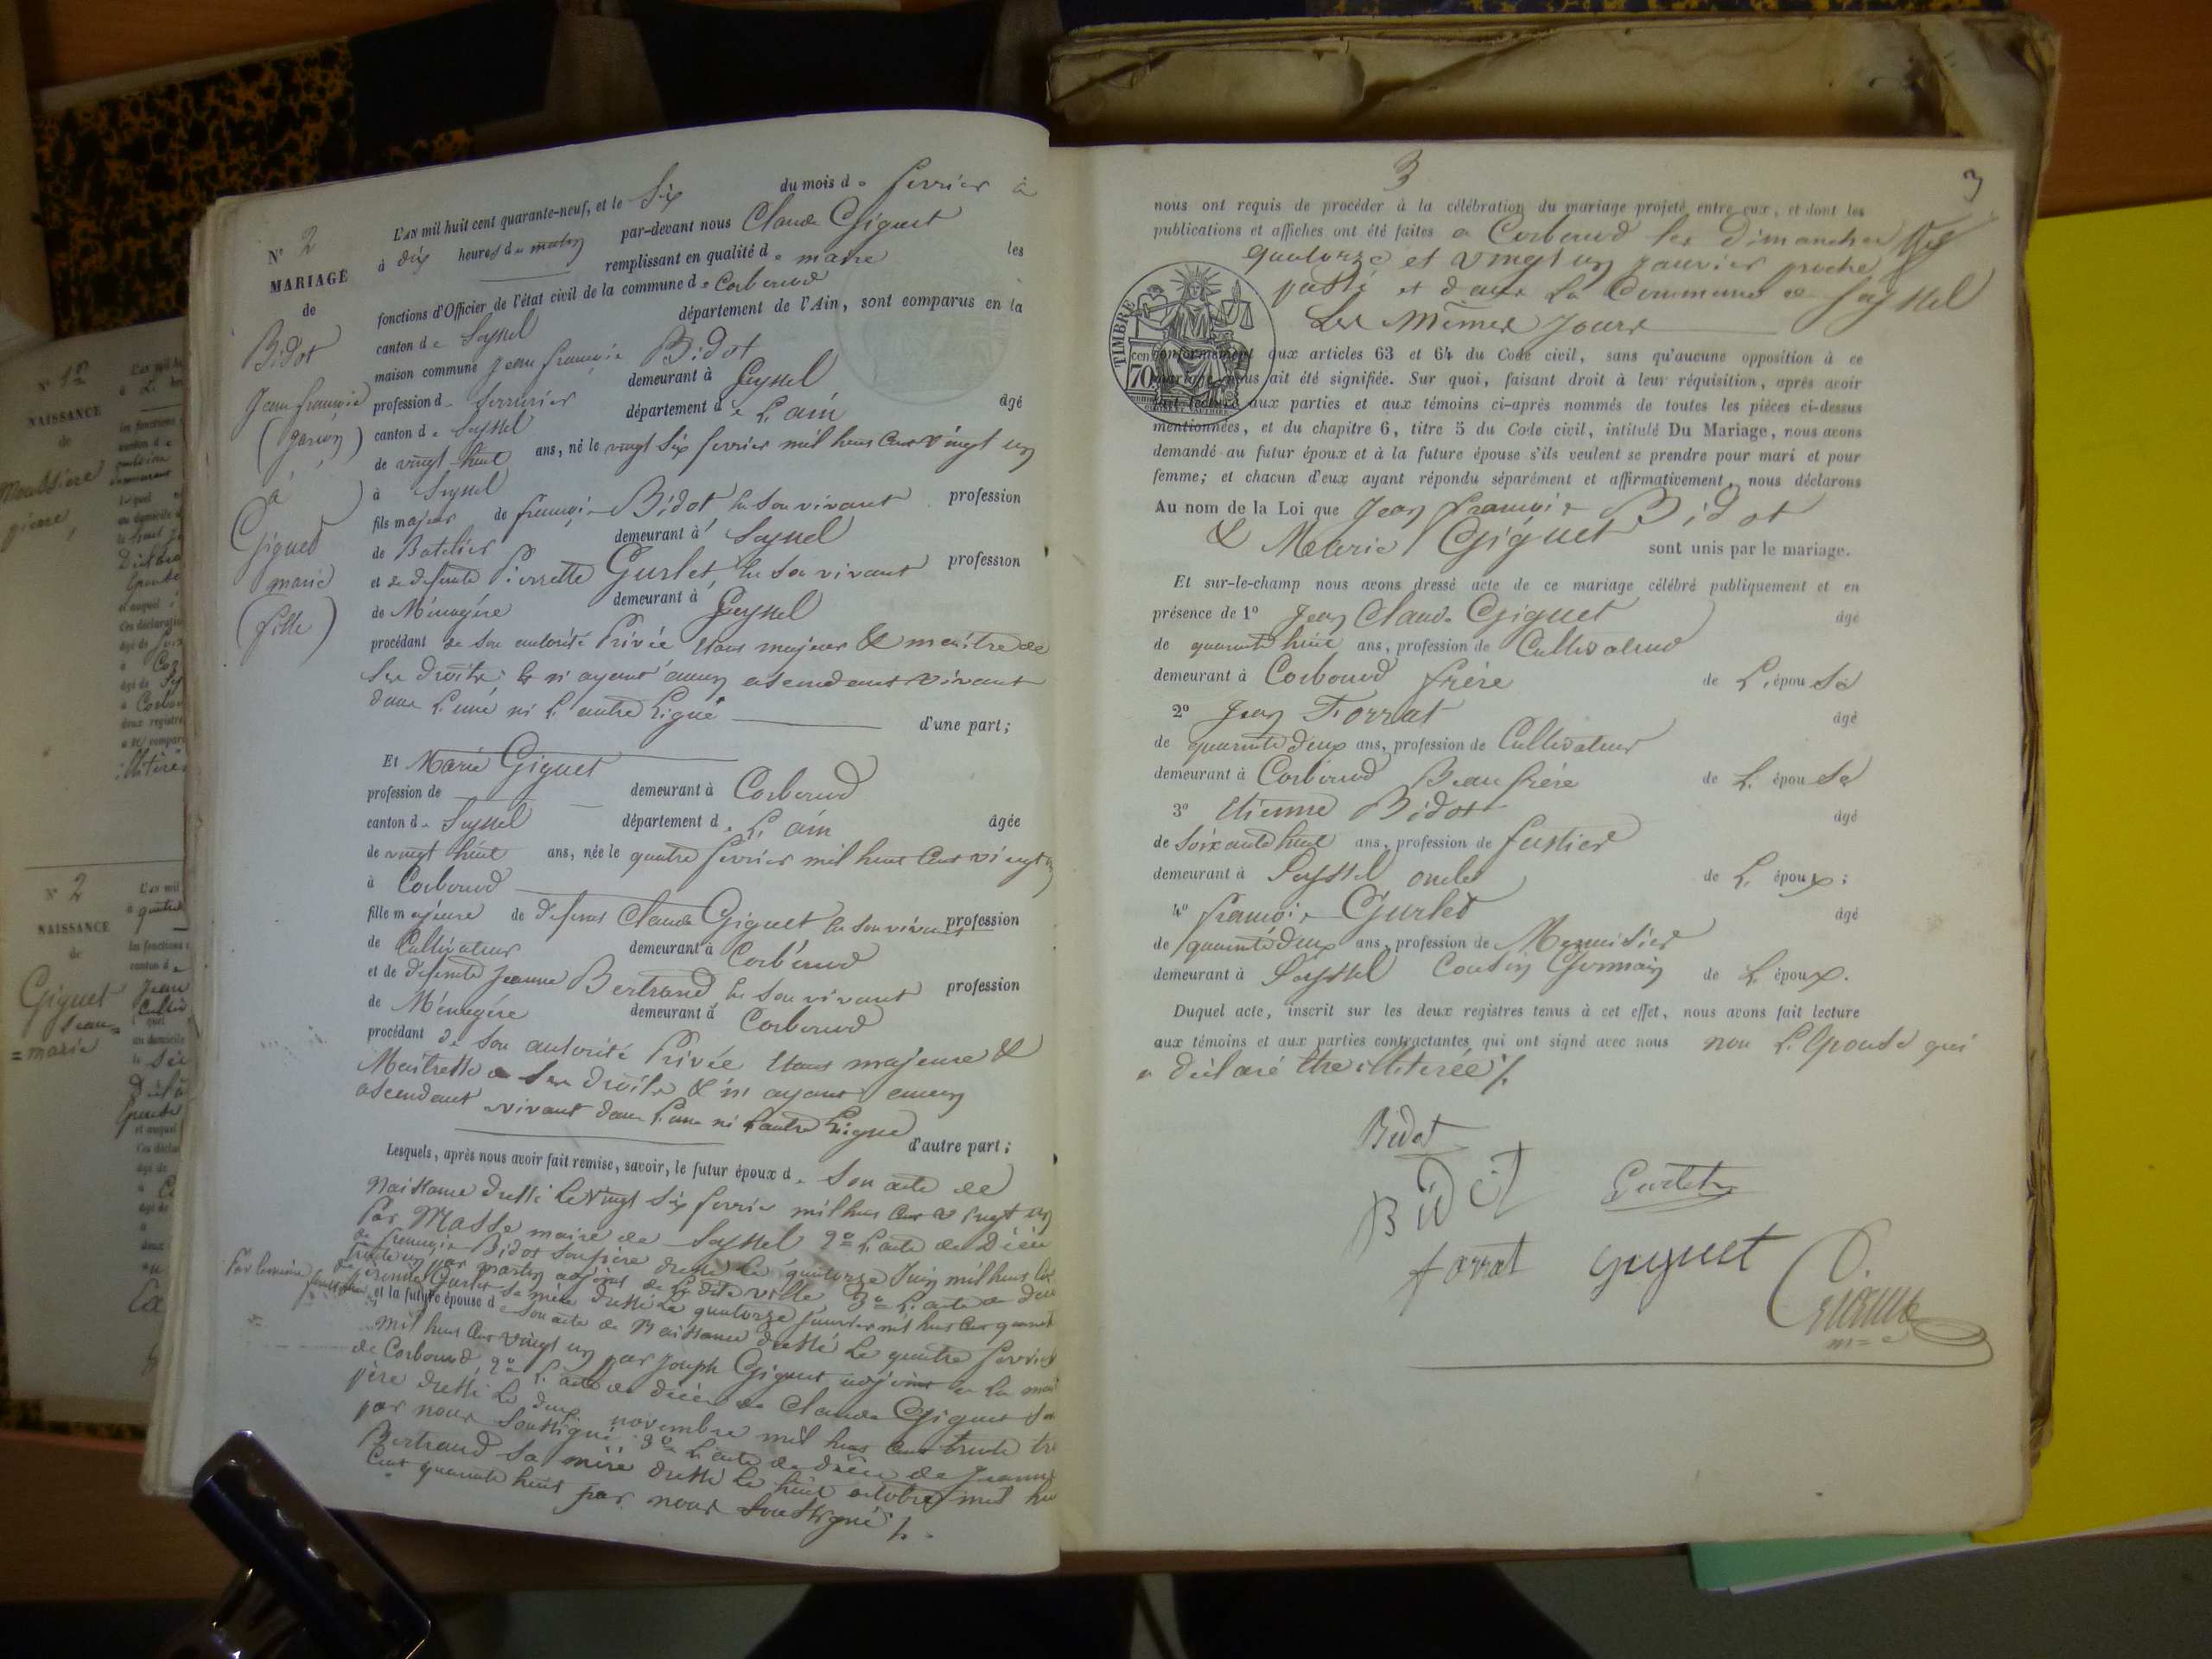 N° 2
MARIAGE
de
Bidot
Jean françois
(garçon)
à
Giguet
marie
(fille)
L'AN mil huit cent quarante-neuf, et le Six du mois de fevrier à
à dix heures du matin par-devant nous Claude Giguet
remplissant en qualité de maire les
fonctions d'Officier de l'état civil de la commune de Corbonod
canton de Seyssel département de l'Ain, sont comparus en la
maison commune Jean françois Bidot
profession de Serrurier demeurant à Seyssel
canton de Seyssel département de L'ain âgé
de vingt huit ans, né le vingt Six fevrier mil huit Cent vingt un
à Seyssel
fils majeur de françois Bidot en Son vivant profession
de Batelier demeurant à Seyssel
et de defunte Pierrette Gurlet, en Son vivant profession
de Ménagére demeurant à Seyssel
procédant de Son autorité Privée étant majeur & maitre de
Ses droits & n'ayant aucun ascendant vivant
dans L'une ni L'autre Ligne d'une part;
Et Marie Giguet
profession de demeurant à Corbonod
canton de Seyssel département de L'ain âgée
de vingt huit ans, née le quatre fevrier mil huit Cent vingt un
à Corbonod
fille majeure de defunt Claude Giguet en Son vivant profession
de Cultivateur demeurant à Corbonod
et de defunte Jeanne Bertrand en Son vivant profession
de Ménagére demeurant à Corbonod
procédant de Son autorité Privée étant majeure &
Maitresse de Ses droits & n'ayant aucun
ascendant vivant dans L'une ni L'autre Ligne
d'autre part;
Lesquels, après nous avoir fait remise, savoir, le futur époux de Son acte de
Naissance dressé Le vingt Six fevrier mil huit Cent vingt un
Par Masse maire de Seyssel 2° L'acte de Décès
de françois Bidot Son père dressé Le quatorze Juin mil huit Cent
trente un par martin adjoint de La dite ville 3° L'acte de décès
de Pierrette Gurlet Sa mère dressé Le quatorze Janvier mil huit Cent quarante
et la future épouse de Son acte de Naissance dressé Le quatre fevrier
mil huit Cent vingt un par Joseph Giguet adjoint de La mairie
de Corbonod, 2° L'acte de décès de Claude Giguet Son
père dressé Le deux novembre mil huit Cent trente
par nous Soussigné 3° L'acte de décès de Jeanne
Bertrand Sa mère dressé Le huit octobre mil huit
Cent quarante huit par nous Soussigné
3
3
nous ont requis de procéder à la célébration du mariage projeté entre eux, et dont les
publications et affiches ont été faites a Corbonod les Dimanches
quatorze et vingt un Janvier proche
passé et dans La Commune de Seyssel
Les mêmes Jours
TIMBRE
70
conformément aux articles 63 et 64 du Code civil, sans qu'aucune opposition à ce
mariage nous ait été signifiée. Sur quoi, faisant droit à leur réquisition, après avoir
fait lecture aux parties et aux témoins ci-après nommés de toutes les pièces ci-dessus
mentionnées, et du chapitre 6, titre 5 du Code civil, intitulé Du Mariage, nous avons
demandé au futur époux et à la future épouse s'ils veulent se prendre pour mari et pour
femme; et chacun d'eux ayant répondu séparément et affirmativement, nous déclarons
Au nom de la Loi que Jean françois Bidot
& Marie Giguet sont unis par le mariage.
Et sur-le-champ nous avons dressé acte de ce mariage célébré publiquement et en
présence de 1° Jean Claude Giguet âgé
de quarante huit ans, profession de Cultivateur
demeurant à Corbonod frère de L'épouse
2° Jean Forrat âgé
de quarante deux ans, profession de Cultivateur
demeurant à Corbonod Beaufrére de L'épouse
3° Etienne Bidot âgé
de Soixante huit ans, profession de fustier
demeurant à Seyssel oncle de L'époux;
4° françois Gurlet âgé
de quarante deux ans, profession de Menuisier
demeurant à Seyssel Cousin Germain de L'époux.
Duquel acte, inscrit sur les deux registres tenus à cet effet, nous avons fait lecture
aux témoins et aux parties contractantes qui ont signé avec nous non L'Epouse qui
a déclaré être illiterée
Bidot
Bidot Gurlet
forrat Giguet
N° 2
NAISSANCE
de
Giguet
Jean
=marie
NAISSANCE
de